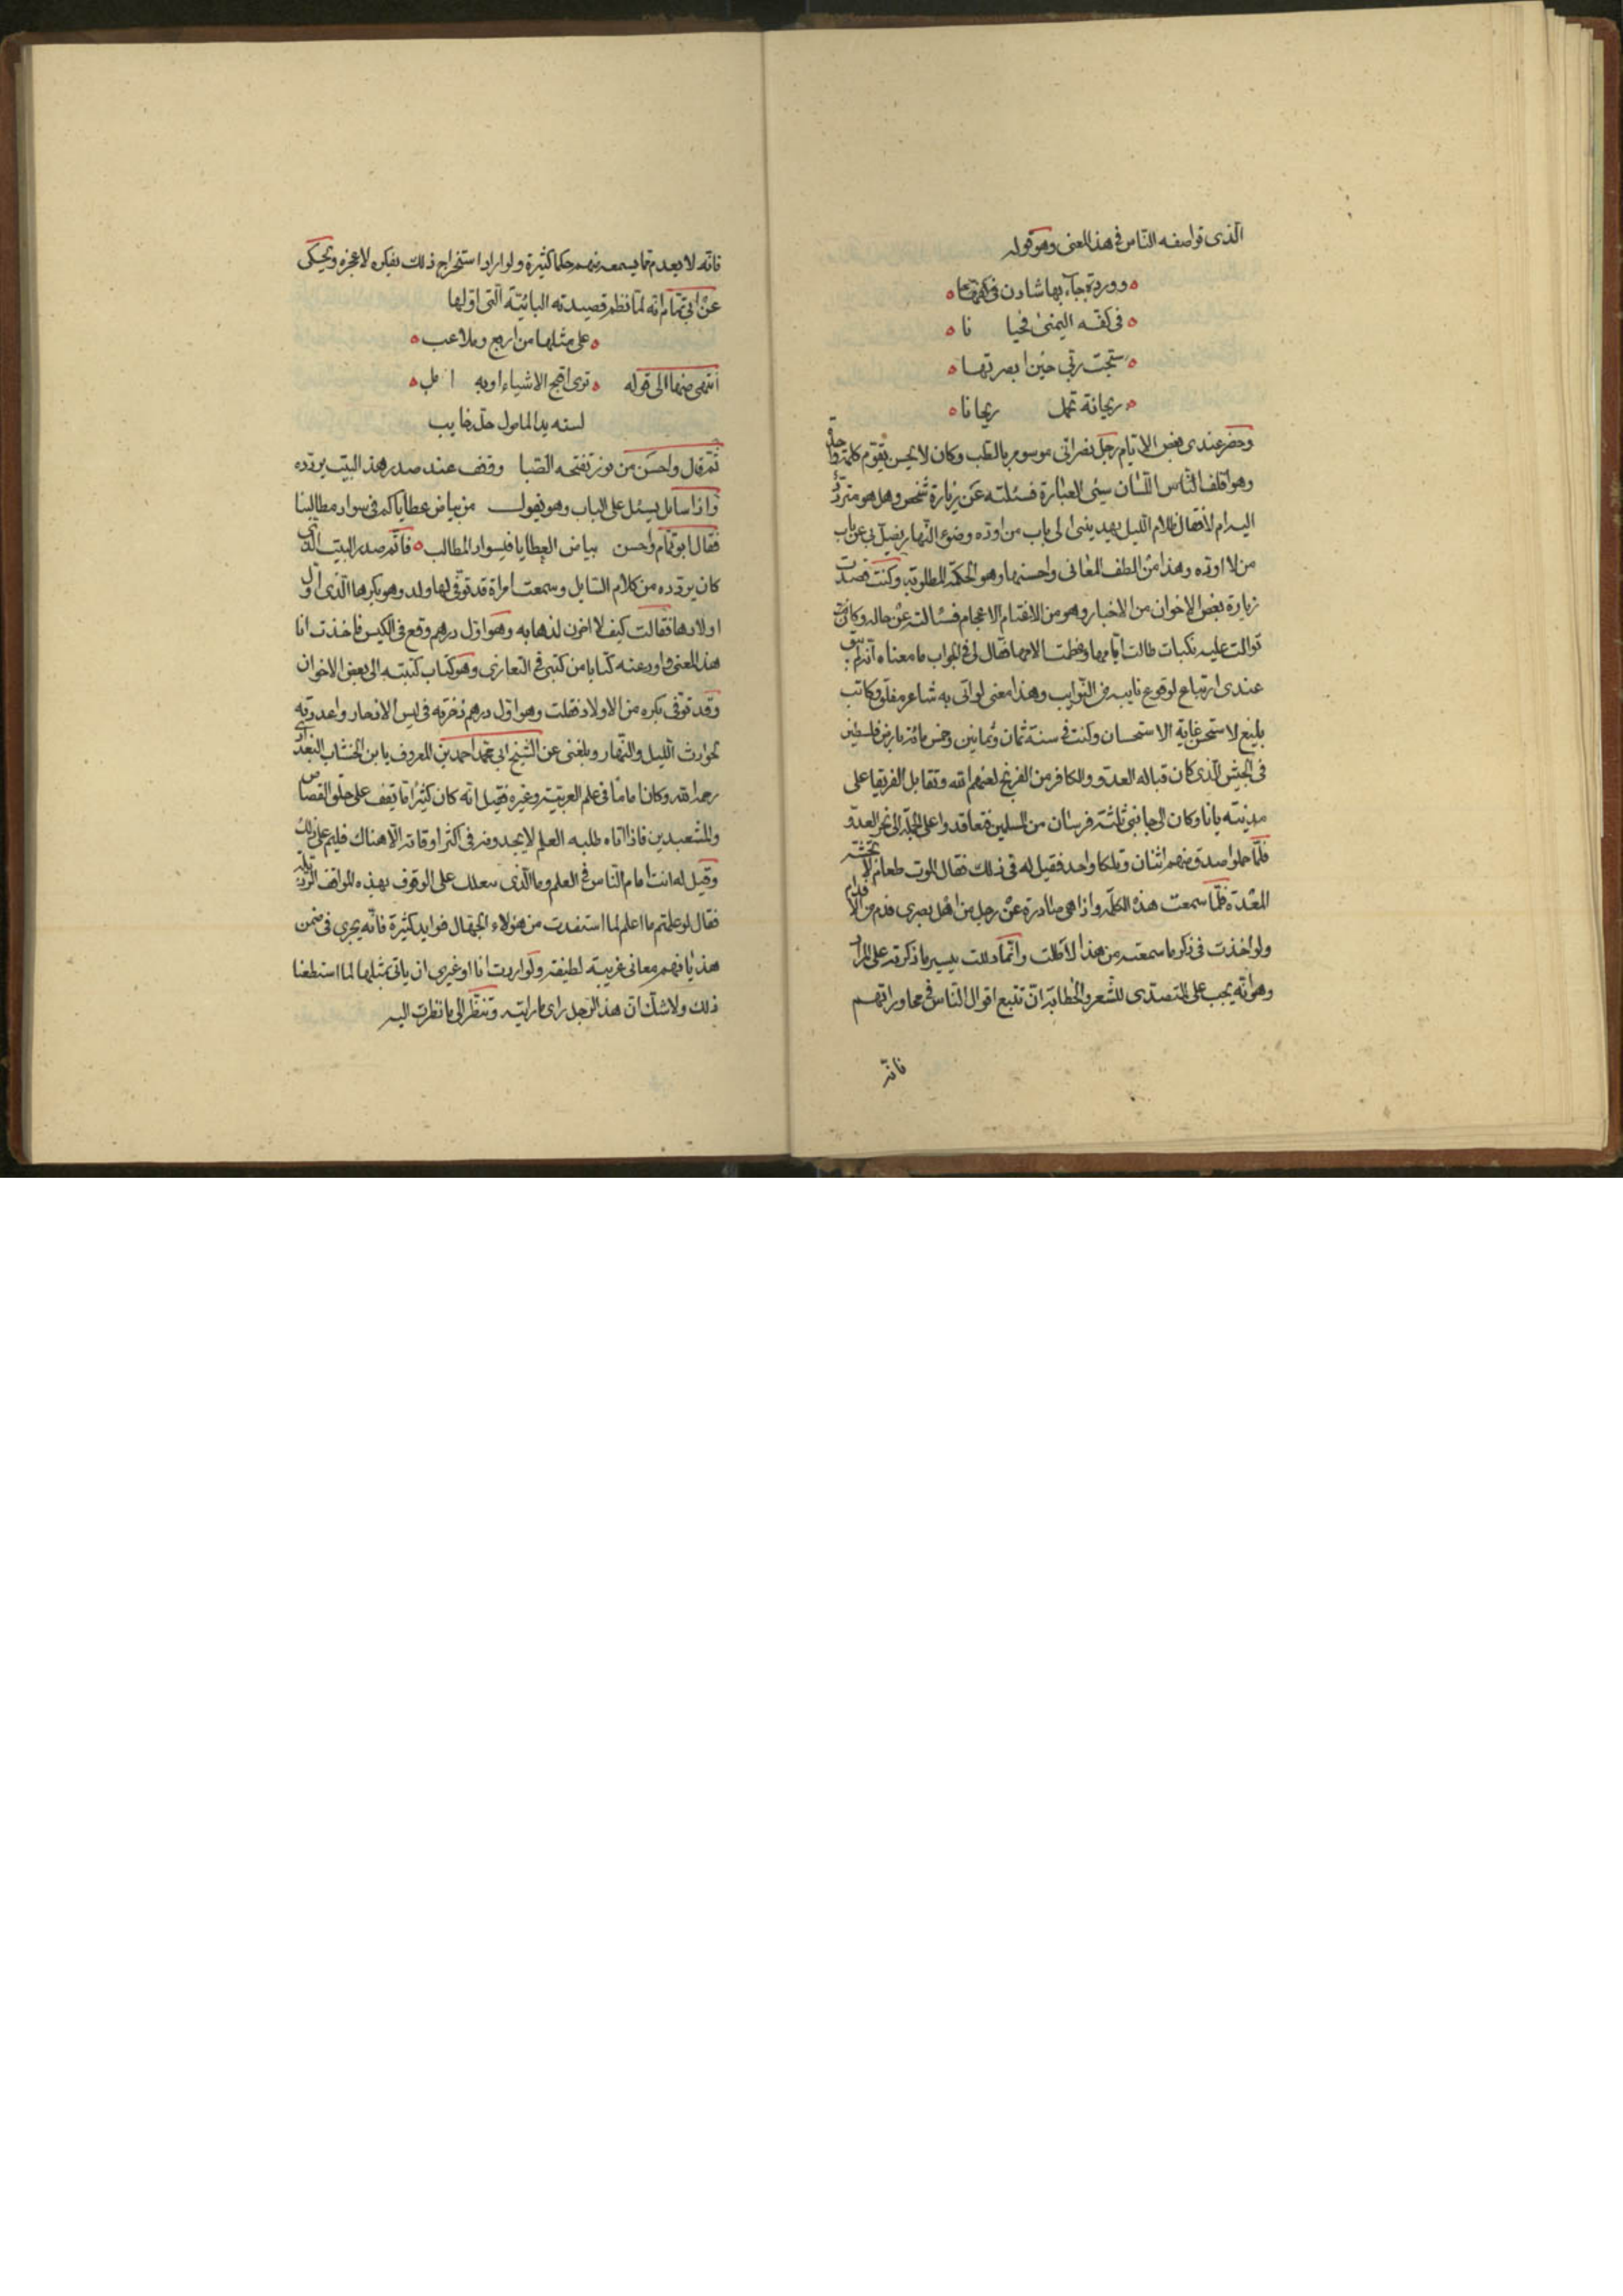 الذى تواصفه الناس فى هذا المعنى وهو قوله
ووردة جآء بها شادن فى كفه
فى كفه اليمنى فحيا نا
سبحت ربى حين ابصرتها
ريحانة تحمل ريحانا
وحضر عندى بعض الايام رجل نصرانى موسوم بالطب وكان لا يحسن يقوم كلمة واحدة
وهو اقلف الناس اللسان سيئ العبارة فسئلته عن زيارة شخص وهل هو متردد
اليه ام لا فقال ظلام الليل يهدينى الى باب من اوده وضوء النهار يضل بى عن باب
من لا اوده وهذا من الطف المعانى واحسنها وهو الحكمة المطلوبة وكنت قصدت
زيارة بعض الاخوان من الاخيار وهو من الاغتام الاعجام فسئالته عن حاله وكانت
توالت عليه نكبات طالت ايامها وعظمت الامها فقال لى فى الجواب ما معناه انه لم يبق
عندى ارتياع لوقوع نايبة من النوايب وهذا معنى لو اتى به شاعر مفلق وكاتب
بليغ لاستحسن غاية الاستحسان وكنت فى سنة ثمان وثمانين وخمس مائة بارض فلسطين
فى الجيش الذى كان قبالة العدو والكافر من الفرنج لعنهم الله وتقابل الفريقا على
مدينة يافا وكان الى جانبى ثلثة فرسان من المسلمين فتعاقدوا على الحملة الى نحر العدو
فلما حملوا صدق منهم اثنان وتلكا واحد فقيل له فى ذلك فقال الموت طعام لا تجشه
المعدة فلما سمعت هذه الكلمة واذا هى صادرة عن رجل من اهل بصرى فدم من الافدام
ولو اخذت فى ذكر ما سمعته من هذا لاطلت وانما دللت بيسير ما ذكرته على المراد
وهو انه يجب على المتصدى للشعر والخطابة ان تتبع اقوال الناس فى محاوراتهم
فانه
فانه لا يعدم مما يسمعه منهم حكما كثيرة ولو اراد استخراج ذلك بفكره لاعجزه ويحكى
عن ابى تمام انه لما نظم قصيدته البائية التى اولها
على مثلها من اربع وملاعب
انتهى منها الى قوله ترى اقبح الاشياء اوبه
لسته يد المامول حلة خايب
ثم قال واحسن من نور تفتحه الصبا وقف عند صدر هذا البيت يردده
واذا سايل يسئل على الباب وهو يقول من بياض عطاياكم فى سواد مطالبنا
فقال ابو تمام واحسن بياض العطايا فى سواد المطالب فاتم صدر البيت الذى
كان يردده من كلام السايل وسمعت امراة قد توفى لها ولد وهو بكرها الذى اول
اولادها فقالت كيف لا احزن لذهابه وهو اول درهم وقع فى الكيس فاخذت انا
هذا المعنى واودعته كتابا من كتبى فى التعازى وهو كتاب كتبته الى بعض الاخوان
وقد توفى بكره من الاولاد فقلت وهو اول درهم ذخرته فى كيس الادخار واعددته
لحوادث الليل والنهار وبلغنى عن الشيخ ابى محمد احمد بن المعروف بابن الخشاب البغدادى
رحمه الله وكان اماما فى علم العربية وغيره فقيل انه كان كثيرا ما يقف على حلق القصاص
والمشعبدين فاذا اتاه طلبه العلم لا يجدونه فى اكثر اوقاته الا هناك فليم على ذلك
وقيل له انت امام الناس فى العلم وما الذى يبعثك على الوقوف بهذه المواقف الرذيلة
فقال لو علمتم ما اعلم لما استفدت من هؤلاء الجهال فوايد كثيرة فانه يجرى فى ضمن
هذيانهم معانى غريبة لطيفة ولو اردت انا او غيرى ان ياتى بمثلها لما استطعنا
ذلك ولا شك ان هذا الرجل راى ما رايته وتنظر الى ما نظرت اليه